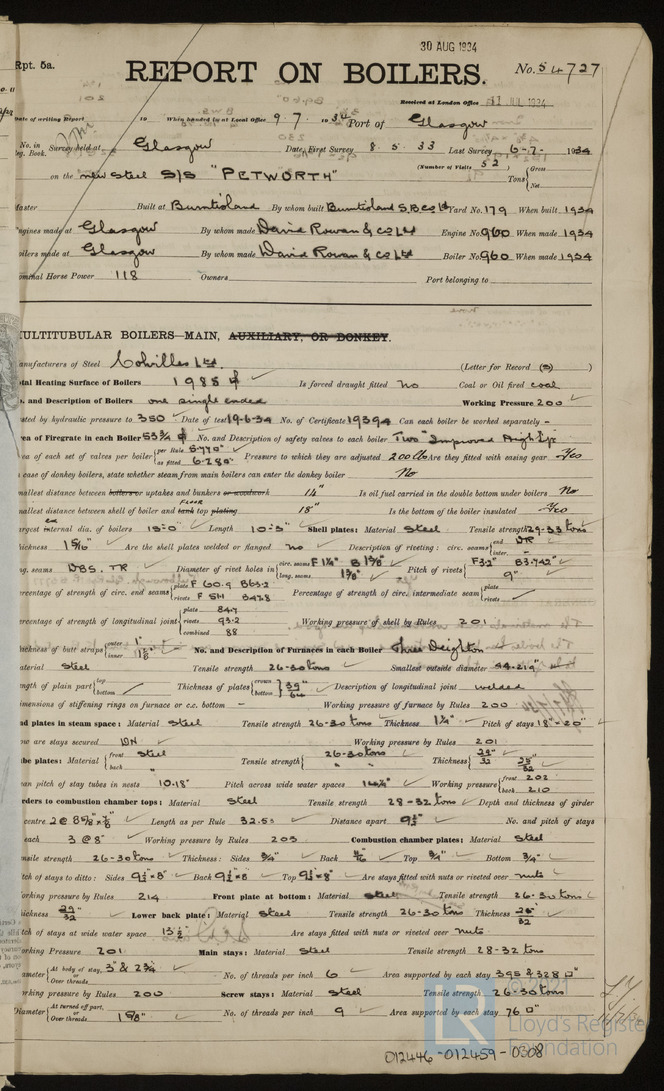 30 AUG 1934
Rpt. 5a.
REPORT ON BOILERS.
No. 54727
Received at London Office JUL 1934
Date of writing Report 19 When handed in at Local Office 9.7.1934 Port of Glasgow
No. in Reg. Book. Survey held at Glasgow Date, First Survey 8.5.33 Last Survey 6-7-1934
(Number of Visits 52)
on the new Steel S/S "PETWORTH" Tons { Gross Net
Master Built at Burntisland By whom built Burntisland S.B. Co Ld Yard No. 179 When built 1934
Engines made at Glasgow By whom made David Rowan & Co Ltd Engine No. 960 When made 1934
Boilers made at Glasgow By whom made David Rowan & Co Ltd Boiler No. 960 When made 1934
Nominal Horse Power 118 Owners Port belonging to
MULTITUBULAR BOILERS—MAIN, AUXILIARY, OR DONKEY.
Manufacturers of Steel Colvilles Ltd. (Letter for Record (S) )
Total Heating Surface of Boilers 1988 Is forced draught fitted No Coal or Oil fired coal
No. and Description of Boilers one single ended Working Pressure 200
Tested by hydraulic pressure to 350 Date of test 19-6-34 No. of Certificate 19394 Can each boiler be worked separately -
Area of Firegrate in each Boiler 53 3/4 No. and Description of safety valves to each boiler Two "Improved High Lift
Area of each set of valves per boiler { per Rule 5.770" as fitted 6.280" Pressure to which they are adjusted 200 lb Are they fitted with easing gear Yes
In case of donkey boilers, state whether steam from main boilers can enter the donkey boiler No
Smallest distance between boilers or uptakes and bunkers or woodwork 14" Is oil fuel carried in the double bottom under boilers No
Smallest distance between shell of boiler and FLOOR tank top plating 18" Is the bottom of the boiler insulated Yes
Largest ex internal dia. of boilers 15-0" Length 10-3" Shell plates: Material Steel Tensile strength 29-33 tons
Thickness 1 5/16" Are the shell plates welded or flanged No Description of riveting: circ. seams { end DR inter. -
long. seams DBS. TR Diameter of rivet holes in { circ. seams F 1 1/4" B 1 3/8" long. seams 1 3/8" Pitch of rivets { F 3.2" B 3.742" 9"
Percentage of strength of circ. end seams { plate F 60.9 B 63.2 rivets F 51.1 B 47.8 Percentage of strength of circ. intermediate seam { plate rivets
Percentage of strength of longitudinal joint { plate 84.7 rivets 93.2 combined 88 Working pressure of shell by Rules 201
Thickness of butt straps { outer 1" inner 1 1/8" No. and Description of Furnaces in each Boiler Three Deighton
Material Steel Tensile strength 26-30 tons Smallest outside diameter 44.219"
Length of plain part { top bottom Thickness of plates { crown bottom 39/64" Description of longitudinal joint welded
Dimensions of stiffening rings on furnace or c.c. bottom - Working pressure of furnace by Rules 200
End plates in steam space: Material Steel Tensile strength 26-30 tons Thickness 1 1/4" Pitch of stays 18" - 20"
How are stays secured DN Working pressure by Rules 201
Tube plates: Material { front Steel back " Tensile strength { 26-30 tons " " Thickness { 29/32" 25/32"
Mean pitch of stay tubes in nests 10.18" Pitch across wide water spaces Working pressure { front 202 back 210
Girders to combustion chamber tops: Material Steel Tensile strength 28-32 tons Depth and thickness of girder
at centre 2 @ 8 5/8" x 7/8" Length as per Rule 32.53 Distance apart 9 1/2" No. and pitch of stays
in each 3 @ 8" Working pressure by Rules 203 Combustion chamber plates: Material Steel
Tensile strength 26-30 tons Thickness: Sides 3/4" Back Top 3/4" Bottom 3/4"
Pitch of stays to ditto: Sides 9 1/2" x 8" Back 9 1/2" x 8" Top 9 1/2" x 8" Are stays fitted with nuts or riveted over nuts
Working pressure by Rules 214 Front plate at bottom: Material Steel Tensile strength 26-30 tons
Thickness 29/32" Lower back plate: Material Steel Tensile strength 26-30 tons Thickness 25/32"
Pitch of stays at wide water space 13 1/2" Are stays fitted with nuts or riveted over nuts
Working Pressure 201 Main stays: Material Steel Tensile strength 28-32 tons
Diameter { At body of stay, or Over threads 3" & 2 3/4" No. of threads per inch 6 Area supported by each stay 395 & 328
Working pressure by Rules 200 Screw stays: Material Steel Tensile strength 26-30 tons
Diameter { At turned off part, or Over threads 1 5/8" No. of threads per inch 9 Area supported by each stay 76
© 2021
LR
Lloyd's Register
Foundation
012446-012459-0308